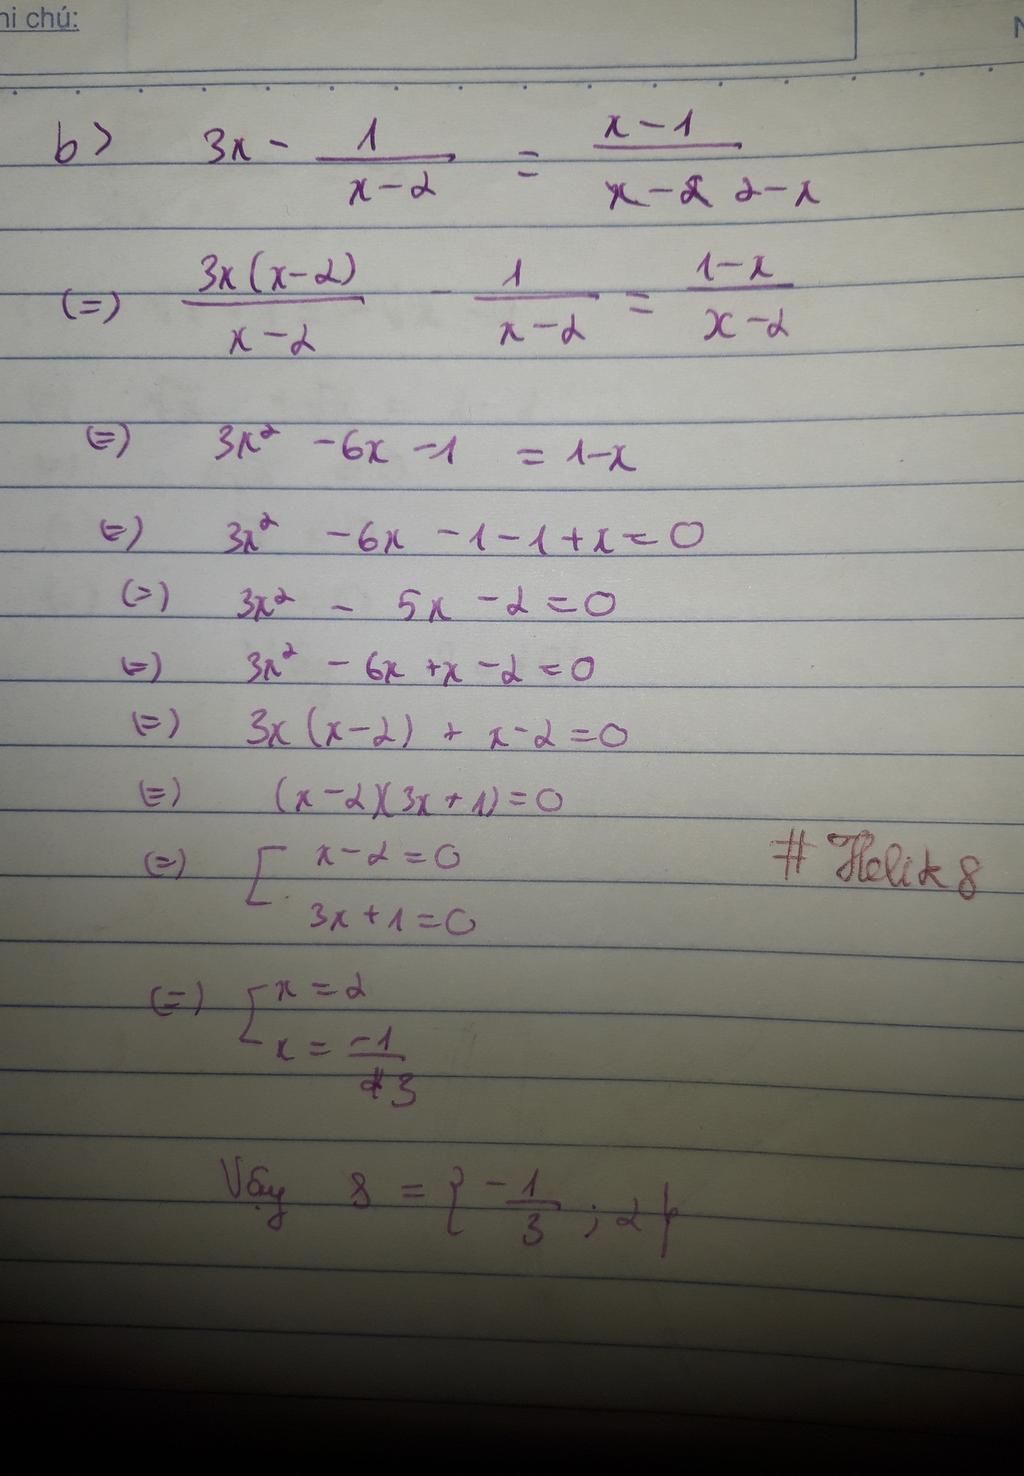 hi chú:
N
b> 3x - 1/(x-2) = (x-1)/(2-x)
(=) 3x(x-2)/(x-2) - 1/(x-2) = (1-x)/(x-2)
(=) 3x² -6x -1 = 1-x
(=) 3x² -6x -1-1+x=0
(=) 3x² - 5x -2=0
(=) 3x² -6x +x -2=0
(=) 3x(x-2) + x-2=0
(=) (x-2)(3x+1)=0
(=) [ x-2=0
3x+1=0
# Helik8
(=) [ x=2
x= -1/3
Vậy S = { -1/3 ; 2 }